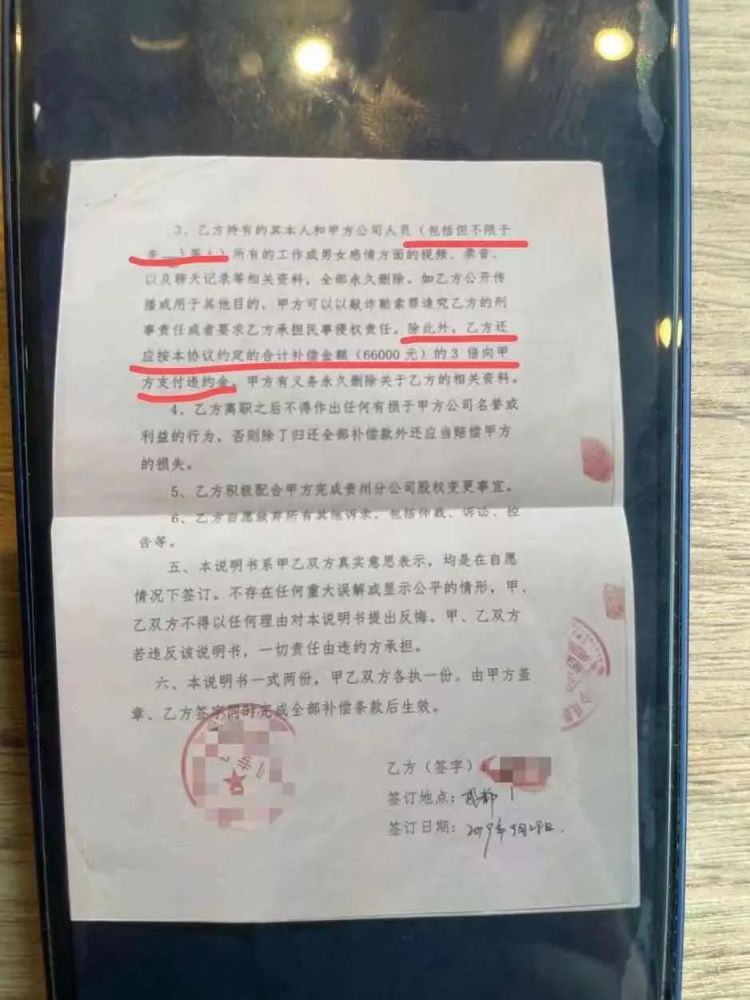 3、乙方持有的其本人和甲方公司人员（包括但不限于
等人）所有的工作或男女感情方面的视频、录音、
以及聊天记录等相关资料，全部永久删除。如乙方公开传
播或用于其他目的，甲方可以以敲诈勒索罪追究乙方的刑
事责任或者要求乙方承担民事侵权责任。除此外，乙方还
应按本协议约定的合计补偿金额（66000元）的3倍向甲
方支付违约金。甲方有义务永久删除关于乙方的相关资料。
4、乙方离职之后不得作出任何有损于甲方公司名誉或
利益的行为，否则除了归还全部补偿款外还应当赔偿甲方
的损失。
5、乙方积极配合甲方完成贵州分公司股权变更事宜。
6、乙方自愿放弃所有其他诉求，包括仲裁、诉讼、控
告等。
五、本说明书系甲乙双方真实意思表示，均是在自愿
情况下签订。不存在任何重大误解或显示公平的情形，甲、
乙双方不得以任何理由对本说明书提出反悔。甲、乙双方
若违反该说明书，一切责任由违约方承担。
六、本说明书一式两份，甲乙双方各执一份。由甲方盖
章、乙方签字同时完成全部补偿条款后生效。
乙方（签字）：
签订地点：成都
签订日期：2019年9月28日.